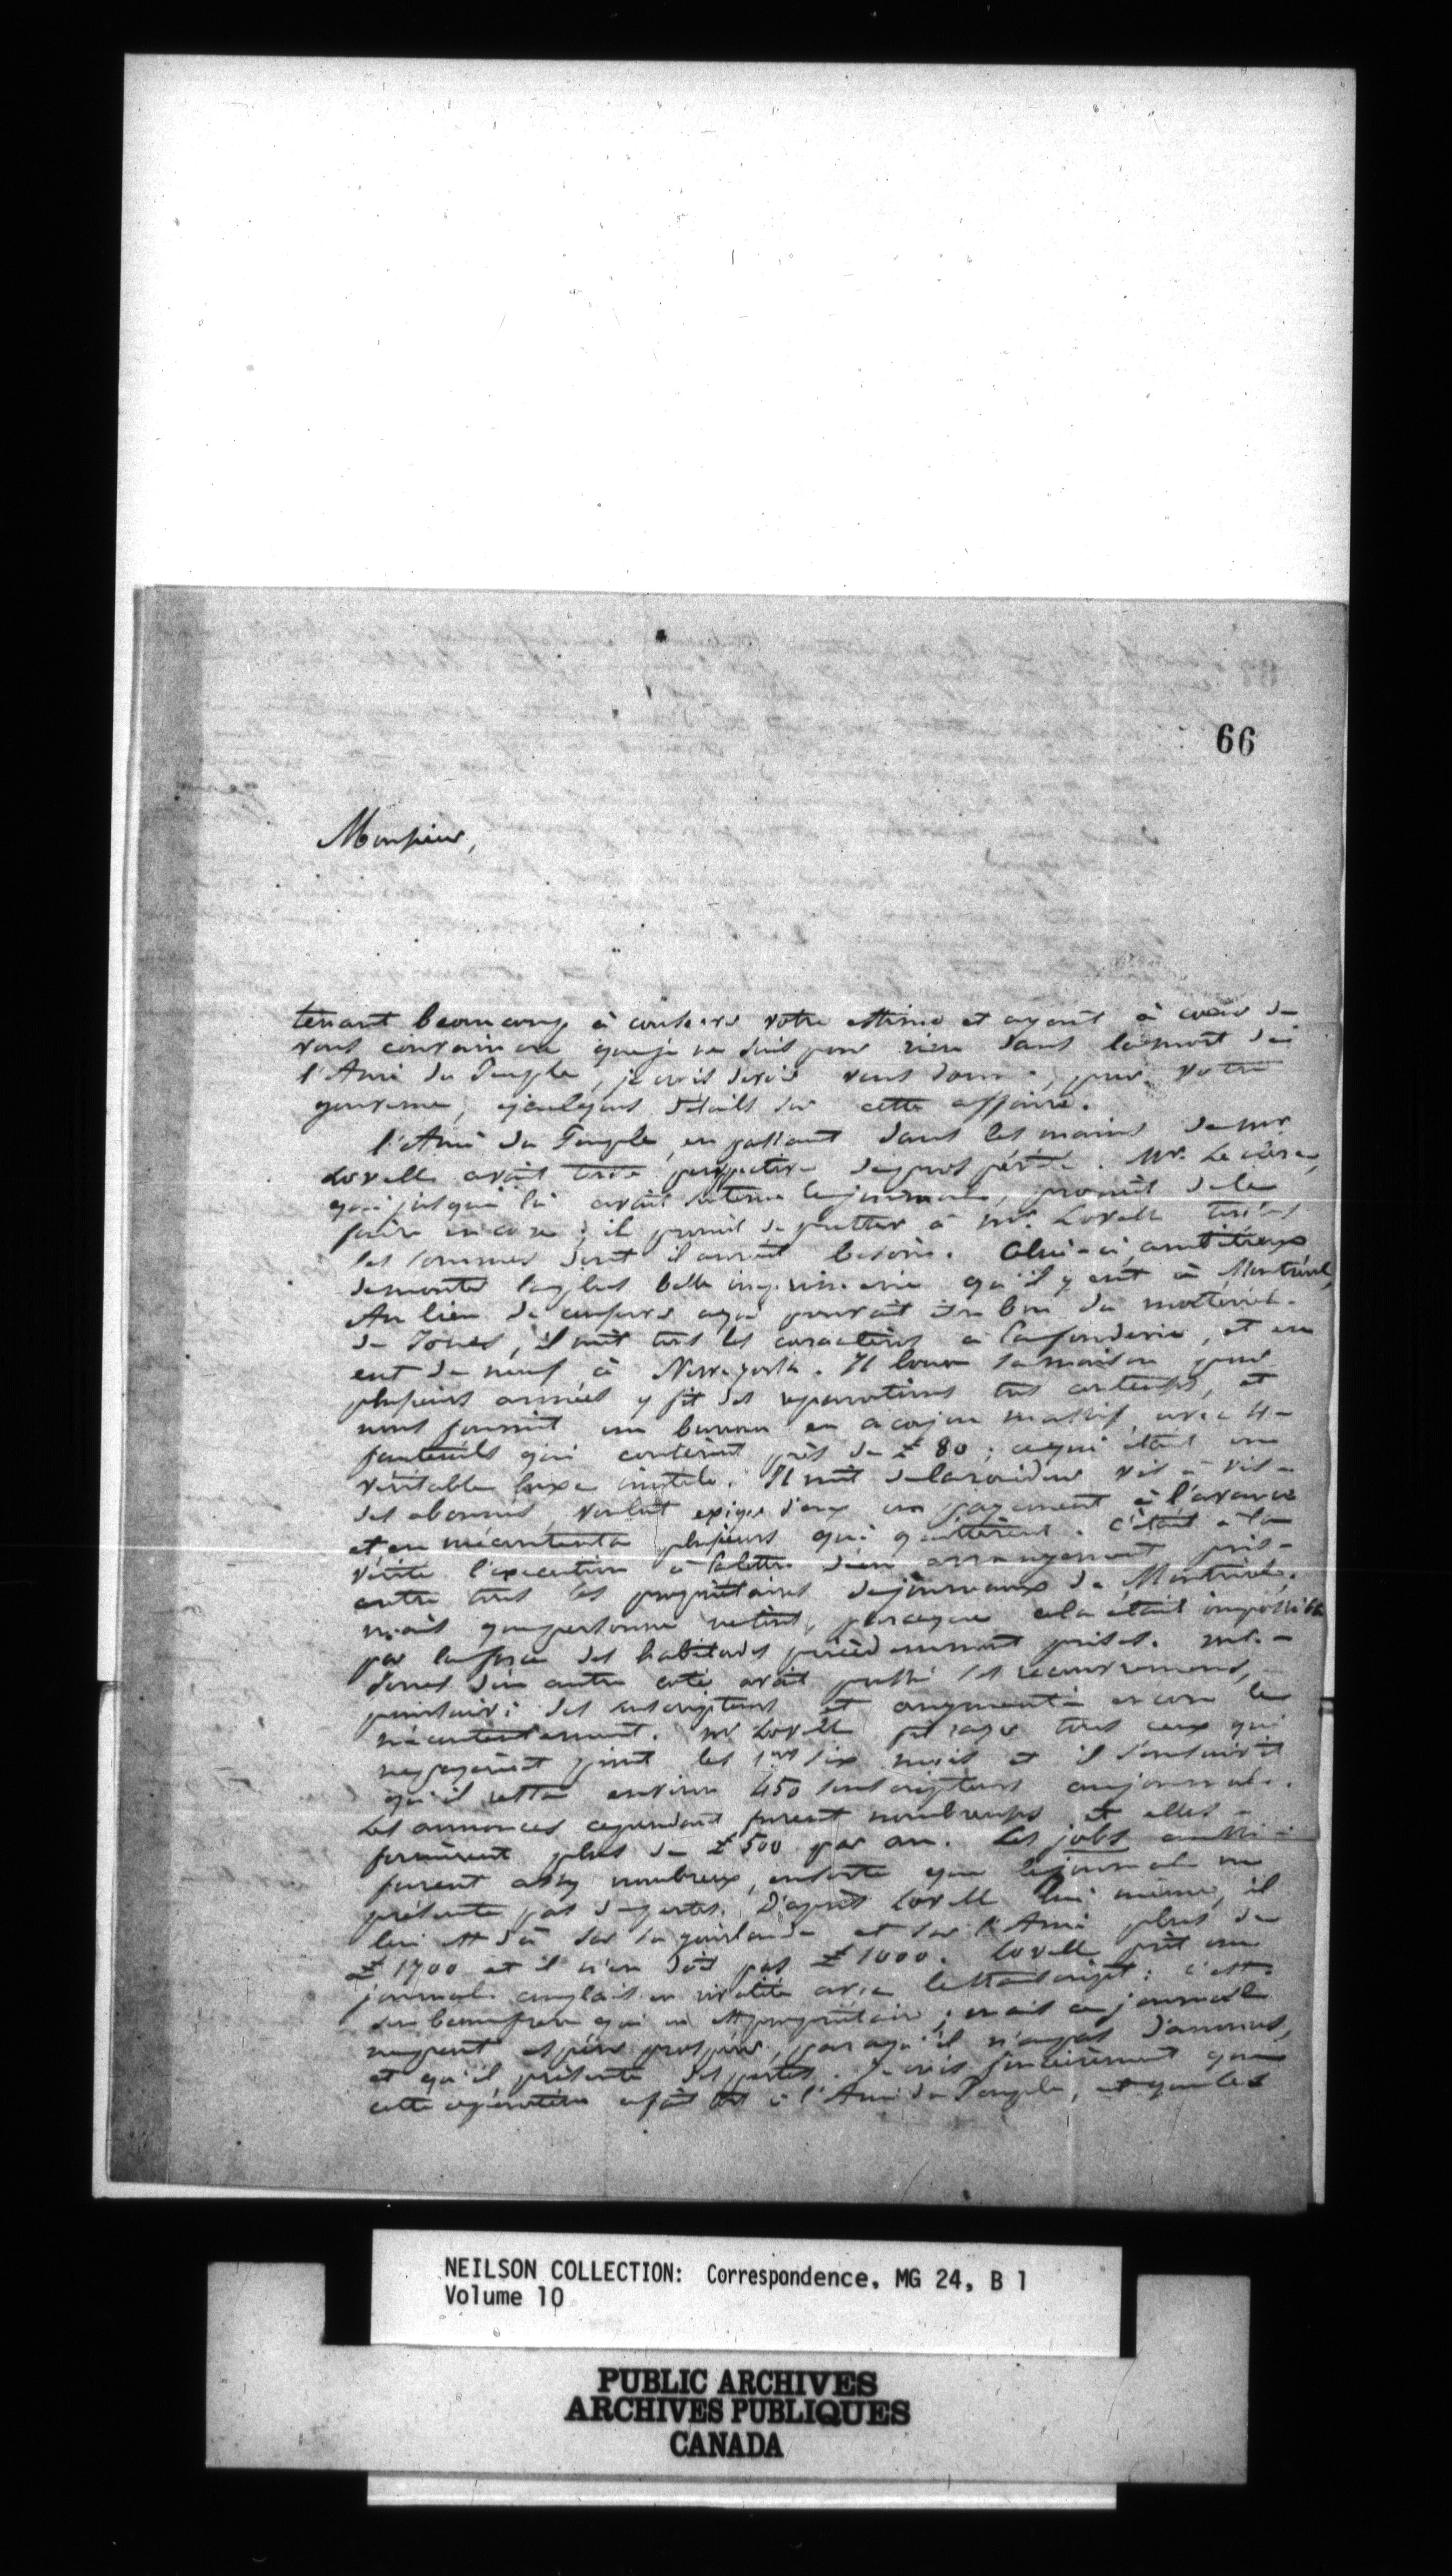 66
Monsieur,
tenant beaucoup à conserver votre estime et ayant à cœur de
vous convaincre que je ne suis pour rien dans la mort de
l'Ami du Peuple, je crois devoir vous donner, pour votre
gouverne, quelques détails sur cette affaire.
l'Ami du Peuple, en passant dans les mains de Mr
Lovell avait toute perspective de prospérité. Mr. Leclère,
qui jusque là avait soutenu le journal, promit de le
faire encore; il promit de prêter à Mr. Lovell toutes
les sommes dont il aurait besoin. Celui-ci, ambitieux
de monter la plus belle imprimerie qu'il y eut à Montréal,
Au lieu de conserver ce qui pouvait être bon du matériel
de Jones, il mit tous les caractères à la fonderie, et en
eut de neuf à New-york. Il loua sa maison pour
plusieurs années y fit des reparations très couteuses, et
nous fournit un bureau en acajou massif, avec
fauteuils qui coutèrent près de £ 80; ce qui était un
véritable luxe inutile. Il mit de la roideur vis-à-vis
des abonnés, voulut exiger d'eux un payement à l'avance
et en mécontenta plusieurs qui quittèrent. c'était à la
vérité l'execution à la lettre d'un arrangement pris
entre tous les propriétaires de journaux de Montréal.
mais que personne ne tint, parceque cela était impossible
par la force des habitudes précédemment prises. Mr.
Jones d'un autre coté avait poussé les recouvremens,
poursuivi des souscripteurs et augmenté encore le
mécontentement. Mr Lovell fit rayer tous ceux qui
ne payèrent point les 1ers six mois et il s'ensuivit
qu'il resta environ 450 souscripteurs au journal.
Les annonces cependant furent nombreuses et elles
formèrent plus de £ 500 par an. Les jobs aussi
furent assez nombreux, ensorte que le journal ne
présenta pas de pertes. D'après Lovell lui même, il
lui est dû sur la guirlande et sur l'Ami plus de
£ 1700 et il n'en doit pas £ 1000. Lovell prit un
journal anglais en rivalité avec le transcript: c'est
son beaufrère qui en est propriétaire; mais ce journal
ne peut espérer prospérer, parce qu'il n'a pas d'annonces,
et qu'il présente des pertes. Je crois sincèrement que
cette opération a fait tort à l'Ami du Peuple, et que les
NEILSON COLLECTION: Correspondence, MG 24, B 1
Volume 10
PUBLIC ARCHIVES
ARCHIVES PUBLIQUES
CANADA